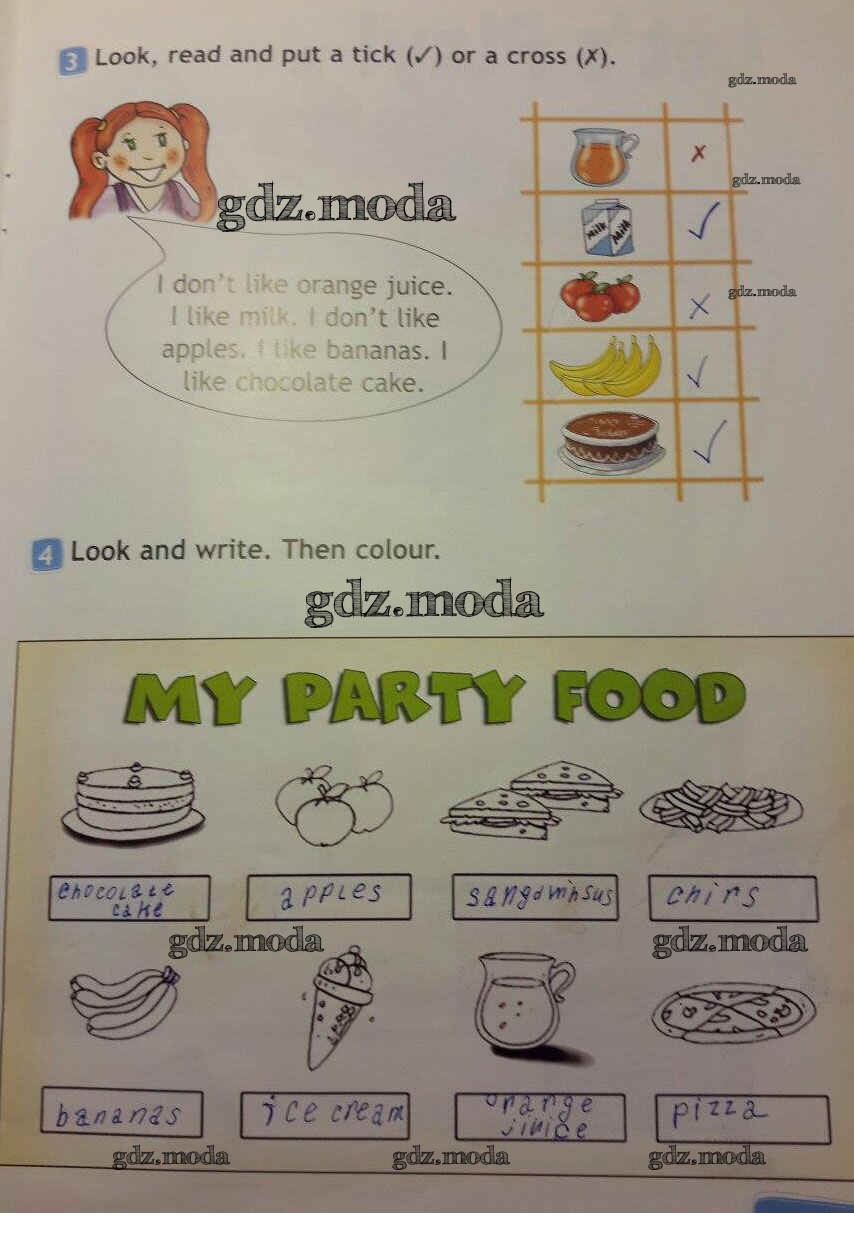 3 Look, read and put a tick (✓) or a cross (✗).
gdz.moda
✗
gdz.moda
gdz.moda
Milk Milk
✓
I don't like orange juice.
I like milk. I don't like
apples. I like bananas. I
like chocolate cake.
gdz.moda
✗
✓
✓
4 Look and write. Then colour.
gdz.moda
MY PARTY FOOD
chocolate
cake
apples
sangdwinsus
chirs
gdz.moda
gdz.moda
bananas
ice cream
orange
jinice
pizza
gdz.moda
gdz.moda
gdz.moda